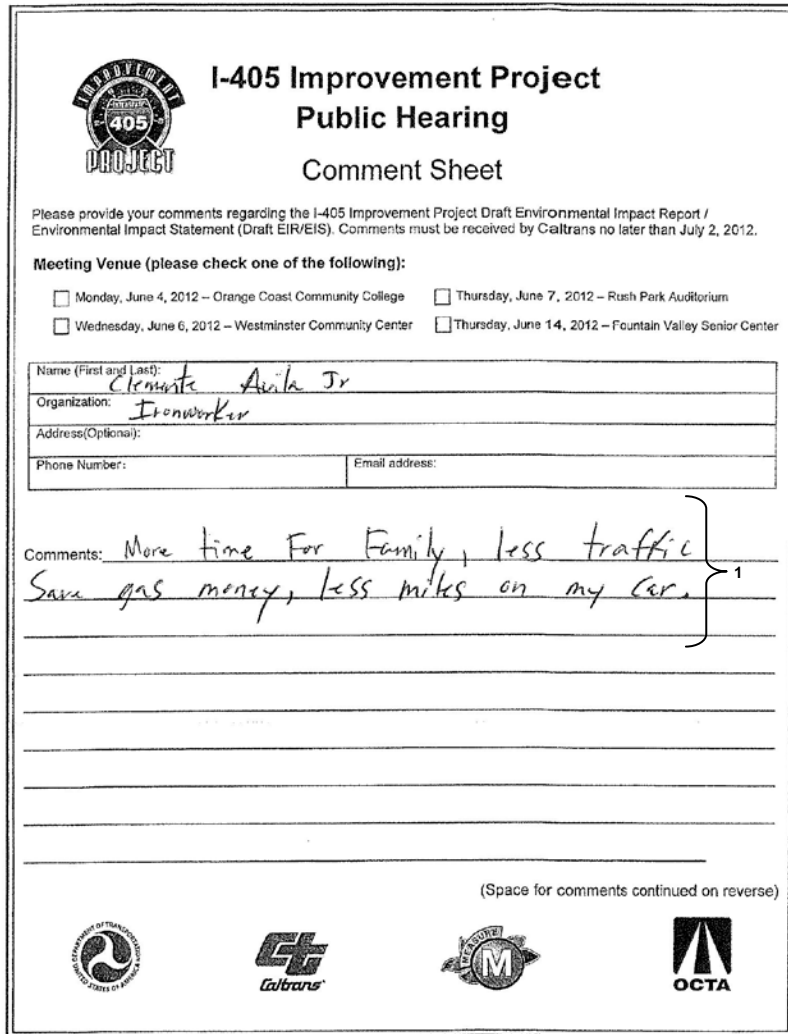 I-405 Improvement Project
Public Hearing
Comment Sheet
IMPROVEMENT
405
PROJECT
Please provide your comments regarding the I-405 Improvement Project Draft Environmental Impact Report /
Environmental Impact Statement (Draft EIR/EIS). Comments must be received by Caltrans no later than July 2, 2012.
Meeting Venue (please check one of the following):
Monday, June 4, 2012 – Orange Coast Community College
Thursday, June 7, 2012 – Rush Park Auditorium
Wednesday, June 6, 2012 – Westminster Community Center
Thursday, June 14, 2012 – Fountain Valley Senior Center
Name (First and Last): Clemente Avila Jr
Organization: Ironworker
Address(Optional):
Phone Number:
Email address:
Comments: More time For Family, less traffic
Save gas money, less miles on my car.
1
(Space for comments continued on reverse)
DEPARTMENT OF TRANSPORTATION
UNITED STATES OF AMERICA
Caltrans
MEASURE
M
OCTA